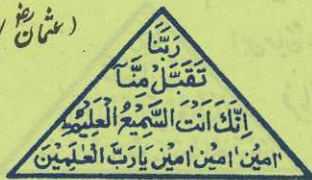 (عثمان رضؓ)
رَبَّنَا
تَقَبَّلْ مِنَّآ
اِنَّكَ اَنْتَ السَّمِيْعُ الْعَلِيْمُ
اٰمِيْن اٰمِيْن اٰمِيْن يَارَبَّ الْعٰلَمِيْنَ